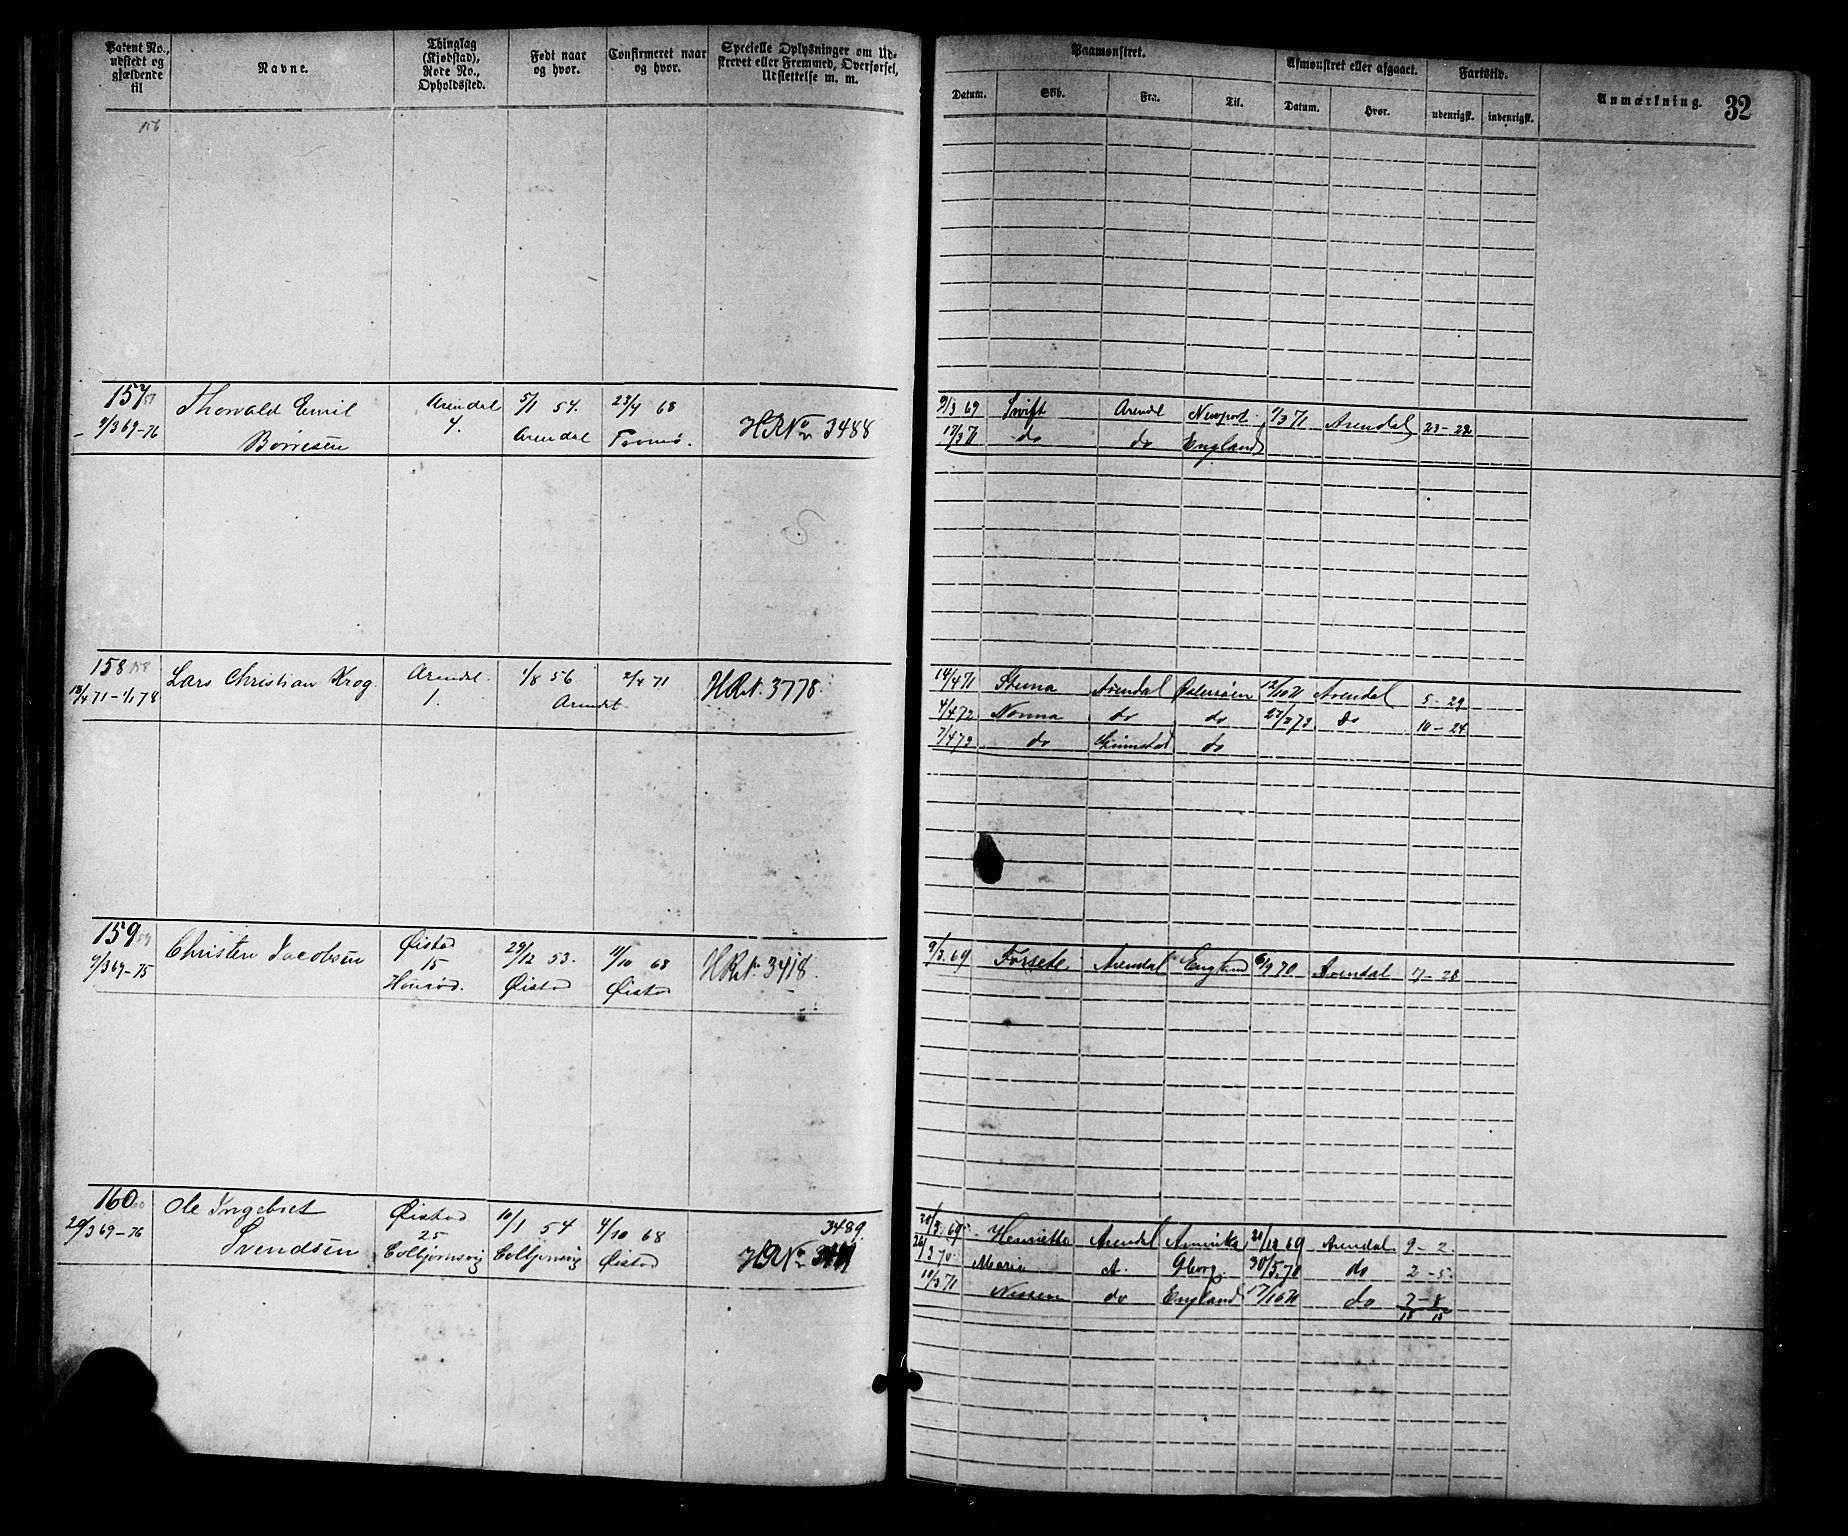 Patent No., udstedt og gjældende til
Navne.
Thinglag (Kjøbstad), Rode No., Opholdssted.
Født naar og hvor.
Confirmeret naar og hvor.
Specielle Oplysninger om Udskrevet eller Fremmed, Overførsel, Udslettelse m. m.
Paamønstret.
Datum.
Skib.
Fra.
Til.
Afmønstret eller afgaaet.
Datum.
Hvor.
Fartstid.
udenrigsk.
indenrigsk.
Anmærkning.
32
156
157
9/3 69-76
Thorvald Emil
Børresen
Arendal
4.
5/1 54.
Arendal
23/4 68
Tromø.
HR No 3488
9/3 69 Swift Arendal Newport 1/3 71 Arendal 23-22
17/3 71 do do England
158
13/4 71-1/1 78
Lars Christian Krog
Arendal
1.
1/8 56
Arendal
2/4 71
HR No. 3778.
14/4 71 Arendal Østersøen 12/10 71 Arendal 5-29
4/4 72 Norma do do 27/2 73 do 10-24
7/4 73 do Grimstad do
159
9/3 69-75
Christen Jacobsen
Øistad
15
29/12 53.
Øistad
11/10 68
Øistad
HR No 3418.
9/3 69 Forsete Arendal England 6/9 70 Arendal 17-28
160
20/3 69-76
Ole Ingebret
Svendsen
Øistad
25
Colbjørnsvig
10/1 54
Colbjørnsvig
4/10 68
Øistad
3489.
HR No
20/3 69 Henriette Arendal Amerika 20/12 69 Arendal 9-2
26/3 70 Marie A. Gborg. 30/5 70 do 2-5
10/3 71 Nissen do England 17/10 71 do 7-8